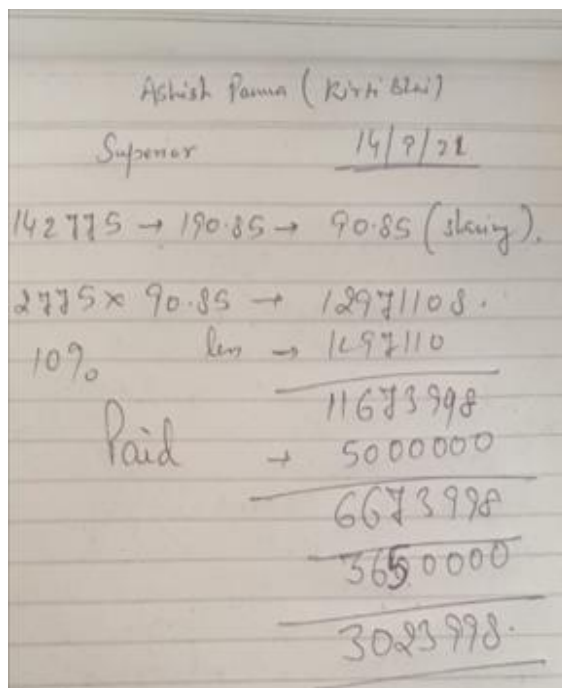 Ashish Parma (Kirti Bhai)
Superior 14/9/21
142775 → 190.85 → 90.85 (sharing).
2775 x 90.85 → 12971108.
10% less → 1297110
11673998
Paid → 5000000
6673998
3650000
3023998.